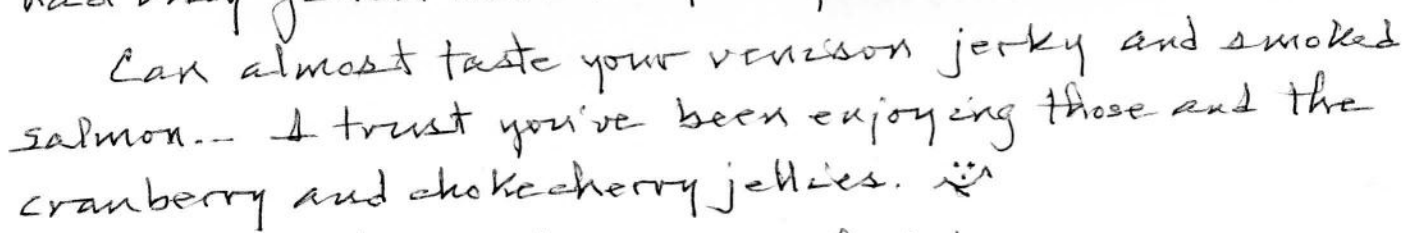 Can almost taste your venison jerky and smoked
salmon... I trust you've been enjoying those and the
cranberry and chokecherry jellies. :)